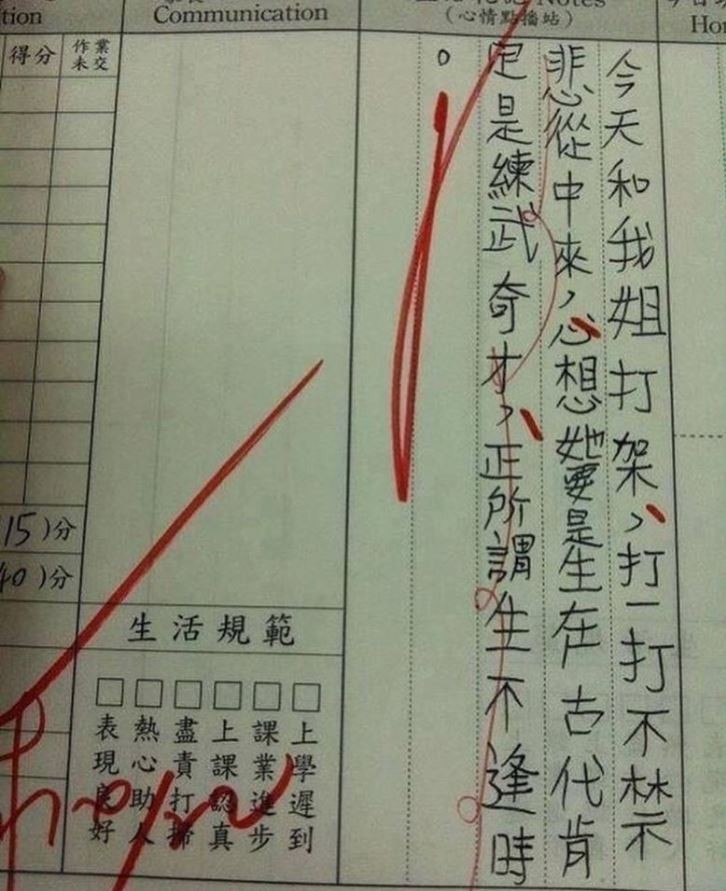 tion
Communication
Notes
(心情點播站)
Hor
得分
作業未交
今天和我姐打架，打一打不禁
悲從中來，心想她要是生在古代肯
定是練武奇才，正所謂生不逢時
。
15)分
40)分
生活規範
□上學遲到
□課業進步
□上課認真
□盡責打掃
□熱心助人
□表現良好